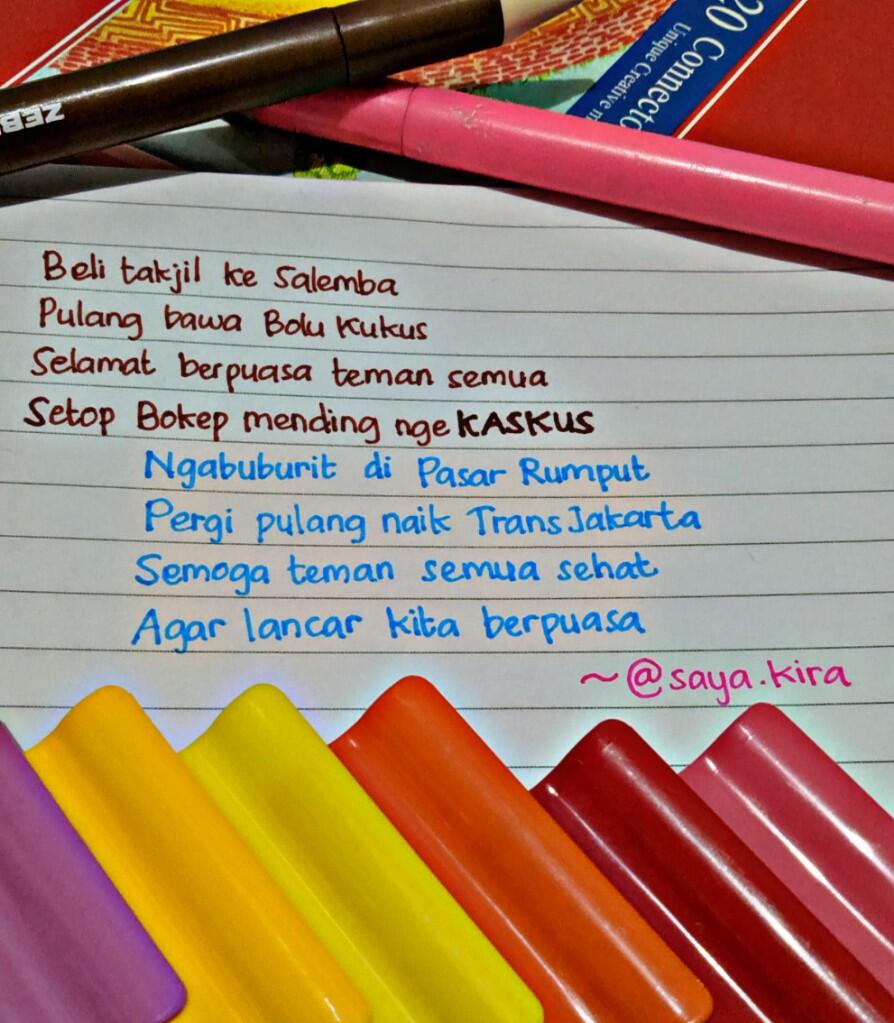 ZEB
20 Connecto
Unique Creative
Beli takjil ke Salemba
Pulang bawa Bolu Kukus
Selamat berpuasa teman semua
Setop Bokep mending nge KASKUS
Ngabuburit di Pasar Rumput
Pergi pulang naik TransJakarta
Semoga teman semua sehat
Agar lancar kita berpuasa
~@saya.kira